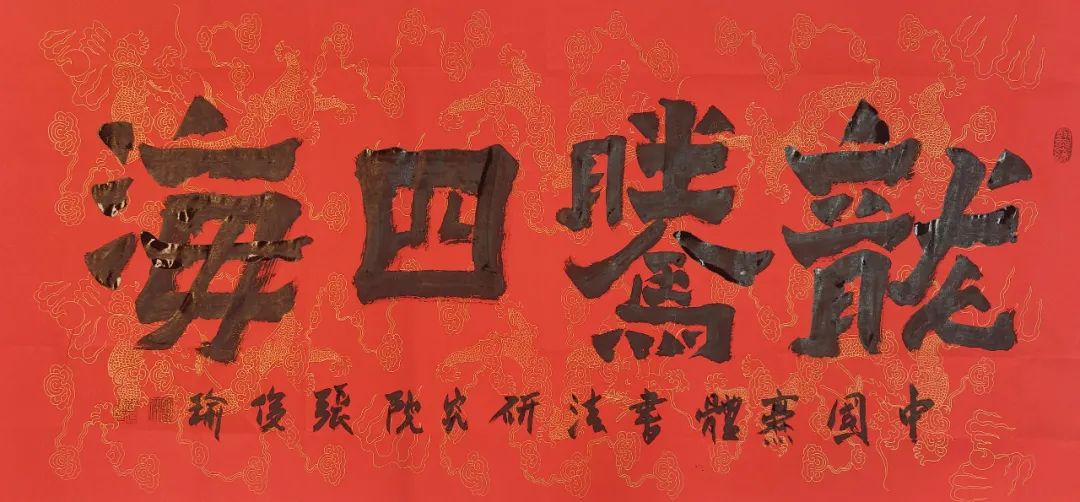 龍騰四海
中國體書法研究院張俊瑜